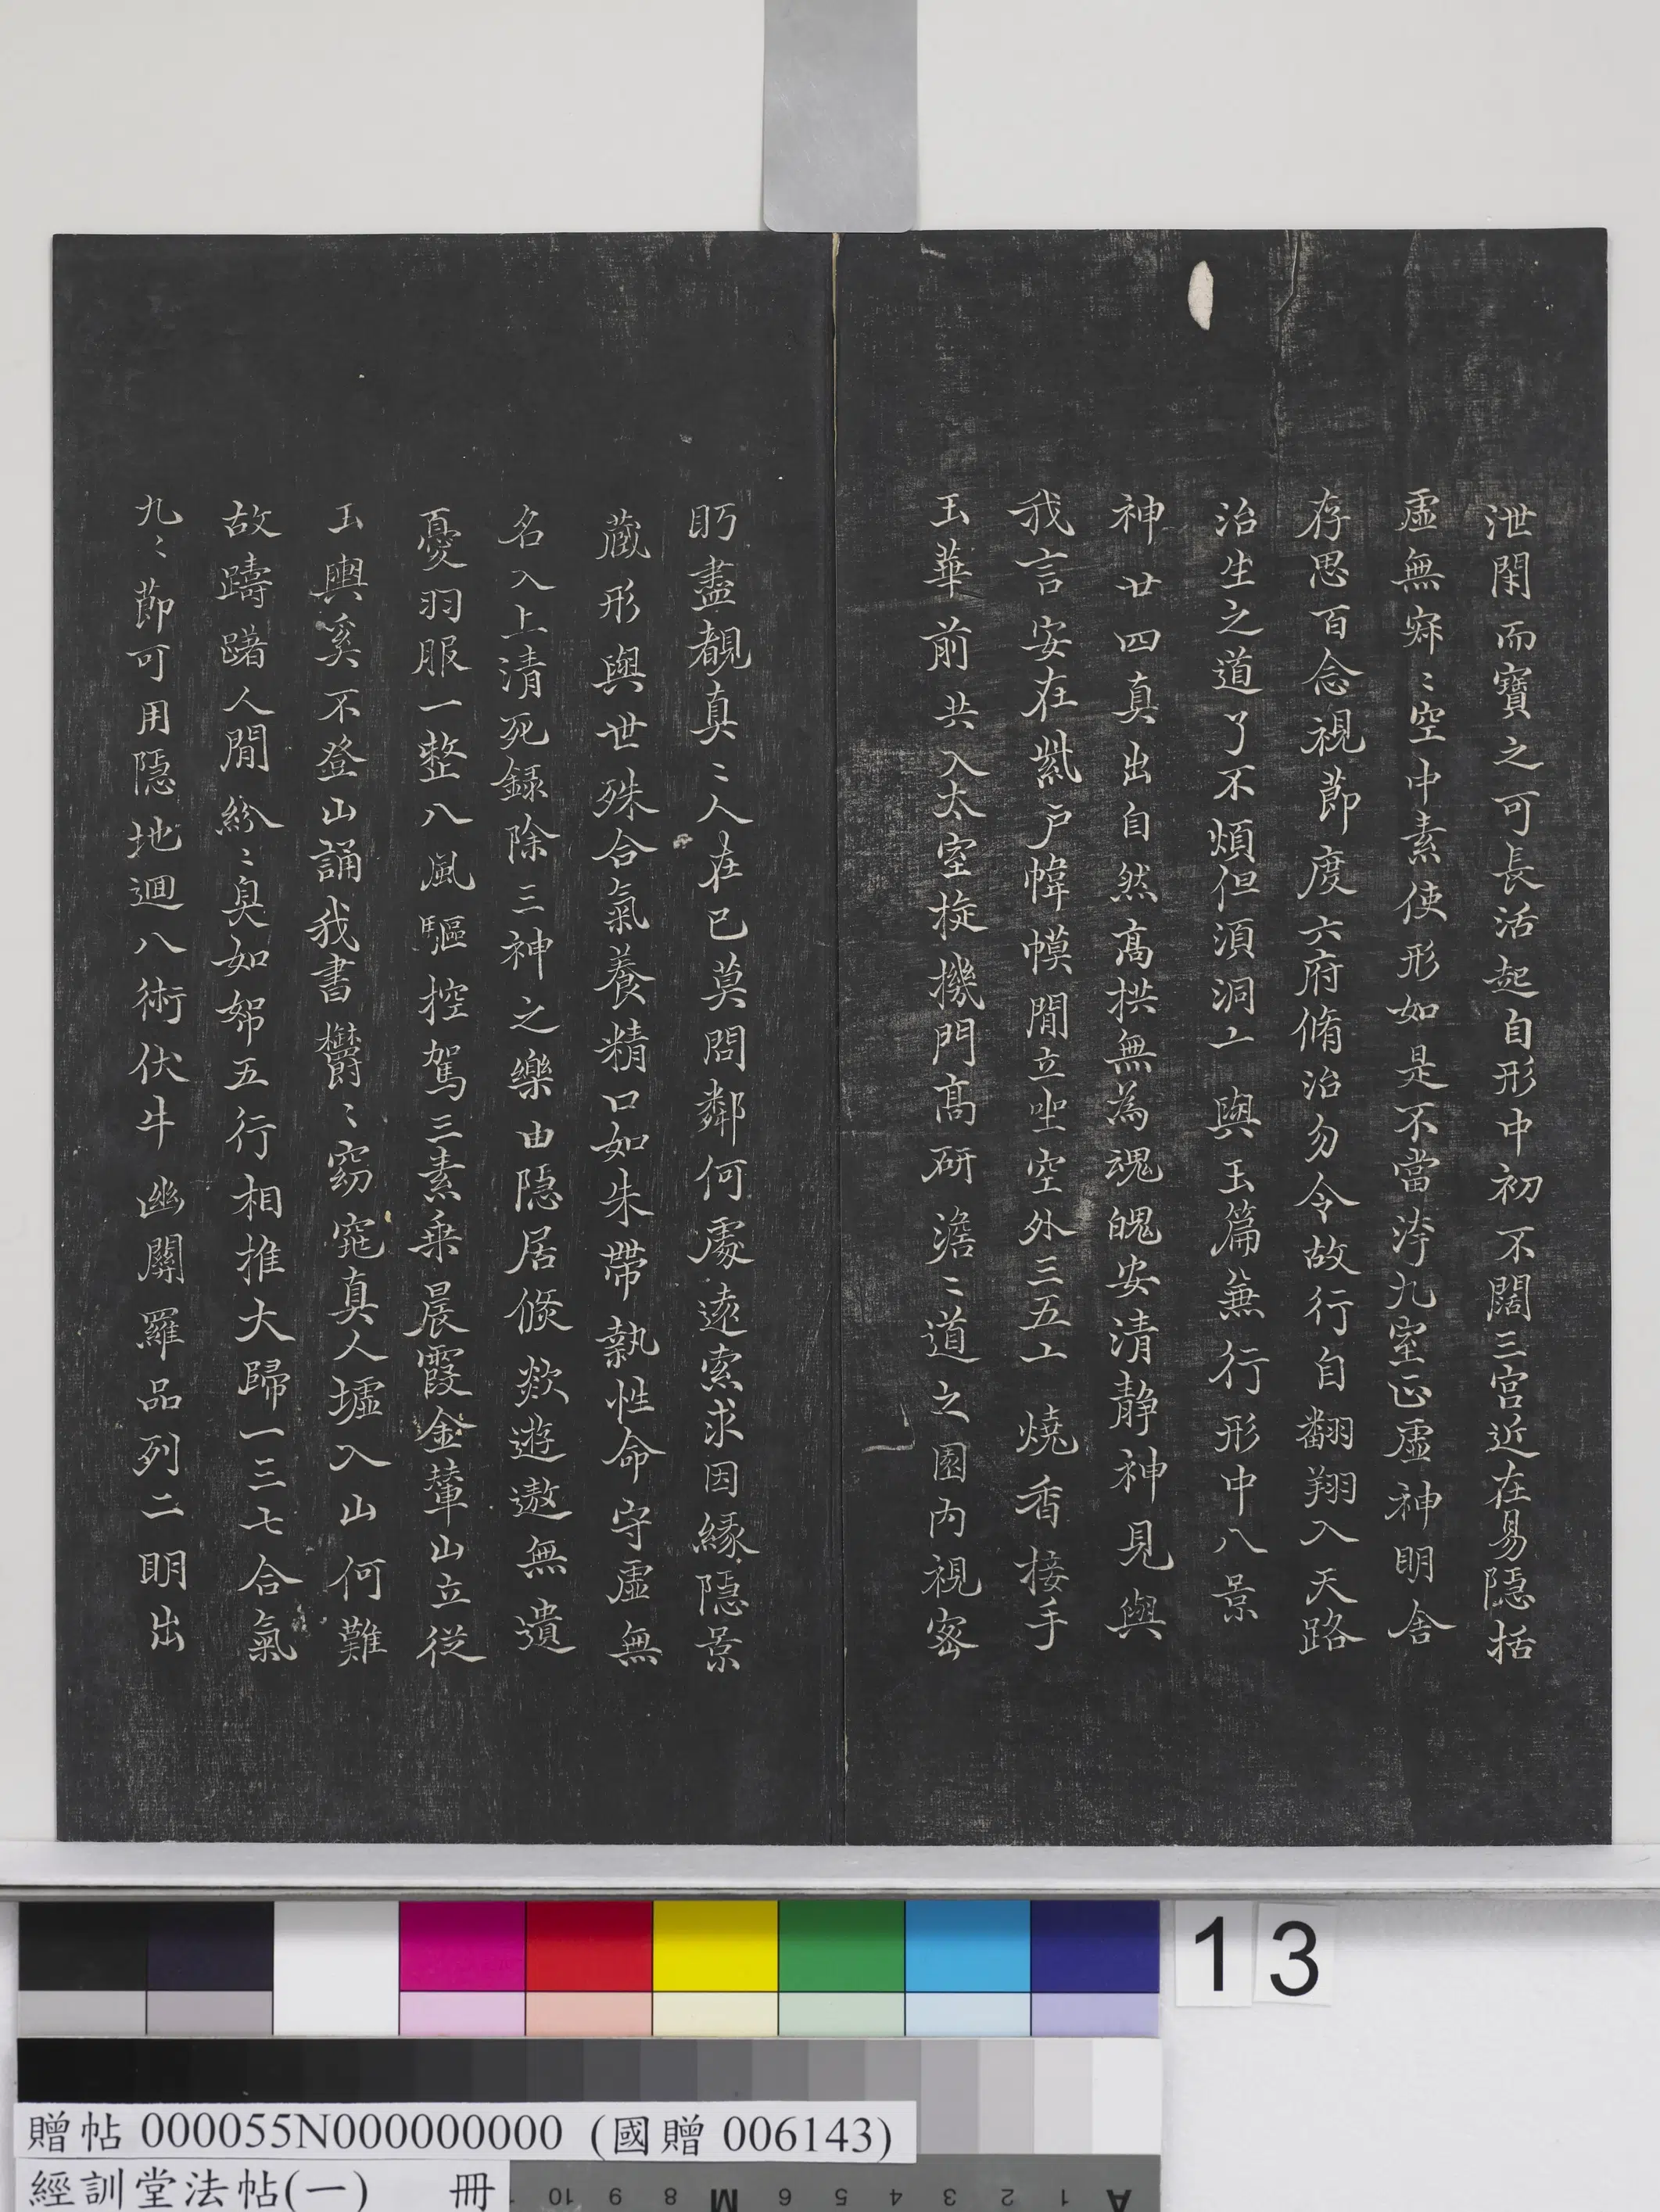 泄閑而寶之可長活起自形中初不闊三宮近在易隱括
虛無寂〻空中素使形如是不當洿九室正虛神明舍
存思百念視節度六府脩治勿令故行自翱翔入天路
治生之道了不煩但湏洞㆒與玉篇兼行形中八景
神廿四真出自然高拱無為魂魄安清静神見與
我言安在紫户幃幙間立坐空外三五㆒燒香接手
玉華前共入太室㫌機門高研澹〻道之園内視密
眄盡覩真〻人在巳莫問鄰何處遠索求因緣隱景
藏形與世殊合氣養精口如朱帶執性命守虛無
名入上清死録除三神之樂由隱居倏欻遊遨無遺
憂羽服一整八風驅控駕三素乘晨霞金輦山立從
玉輿奚不登山誦我書欝〻窈窕真人墟入山何難
故躊躇人間紛〻臭如帤五行相推大歸一三七合氣
九〻節可用隱地迴八術伏牛幽闕羅品列二明出
13
贈帖 000055N000000000 (國贈 006143)
經訓堂法帖(一) 冊
10 9 8 M 6 5 4 3 2 1 A